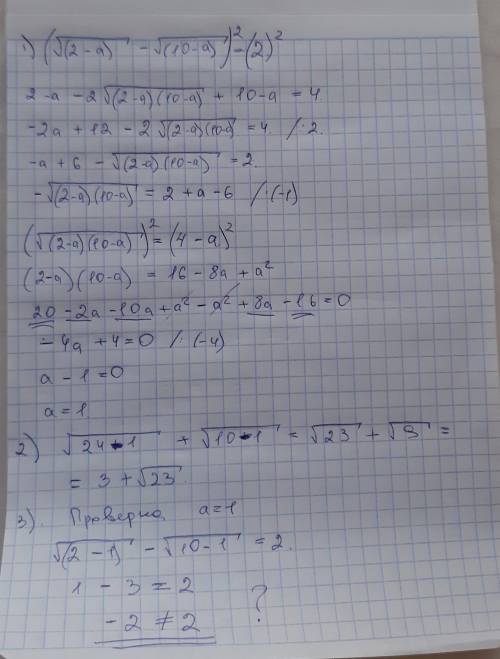 1) (√(2-a) - √(10-a))² = (2)²
2-a - 2√(2-a)(10-a) + 10-a = 4
-2a + 12 - 2√(2-a)(10-a) = 4 /:2.
-a + 6 - √(2-a)(10-a) = 2.
-√(2-a)(10-a) = 2 + a - 6 /·(-1)
(√(2-a)(10-a))² = (4 - a)²
(2-a)(10-a) = 16 - 8a + a²
20 - 2a - 10a + a² - a² + 8a - 16 = 0
- 4a + 4 = 0 /:(-4)
a - 1 = 0
a = 1
2) √24-1 + √10-1 = √23 + √9 =
= 3 + √23
3). Проверка a = 1
√(2-1) - √10-1 = 2.
1 - 3 = 2
- 2 ≠ 2 ?